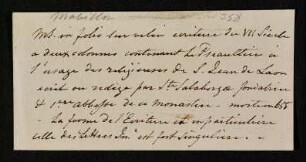 Mabillon 358
MS. in folio sur velin ecriture du VII Siecle
a deux colonnes contenant le Pseaultier à
l'usage des religieuses de S. Jean de Laon
ecrit ou redigé par Ste Salaberga fondatrice
& 1ere abbesse de ce Monastère - morte en 655
- La forme de l'Ecriture et en particulière
celle des Lettres est fort Singulière. -